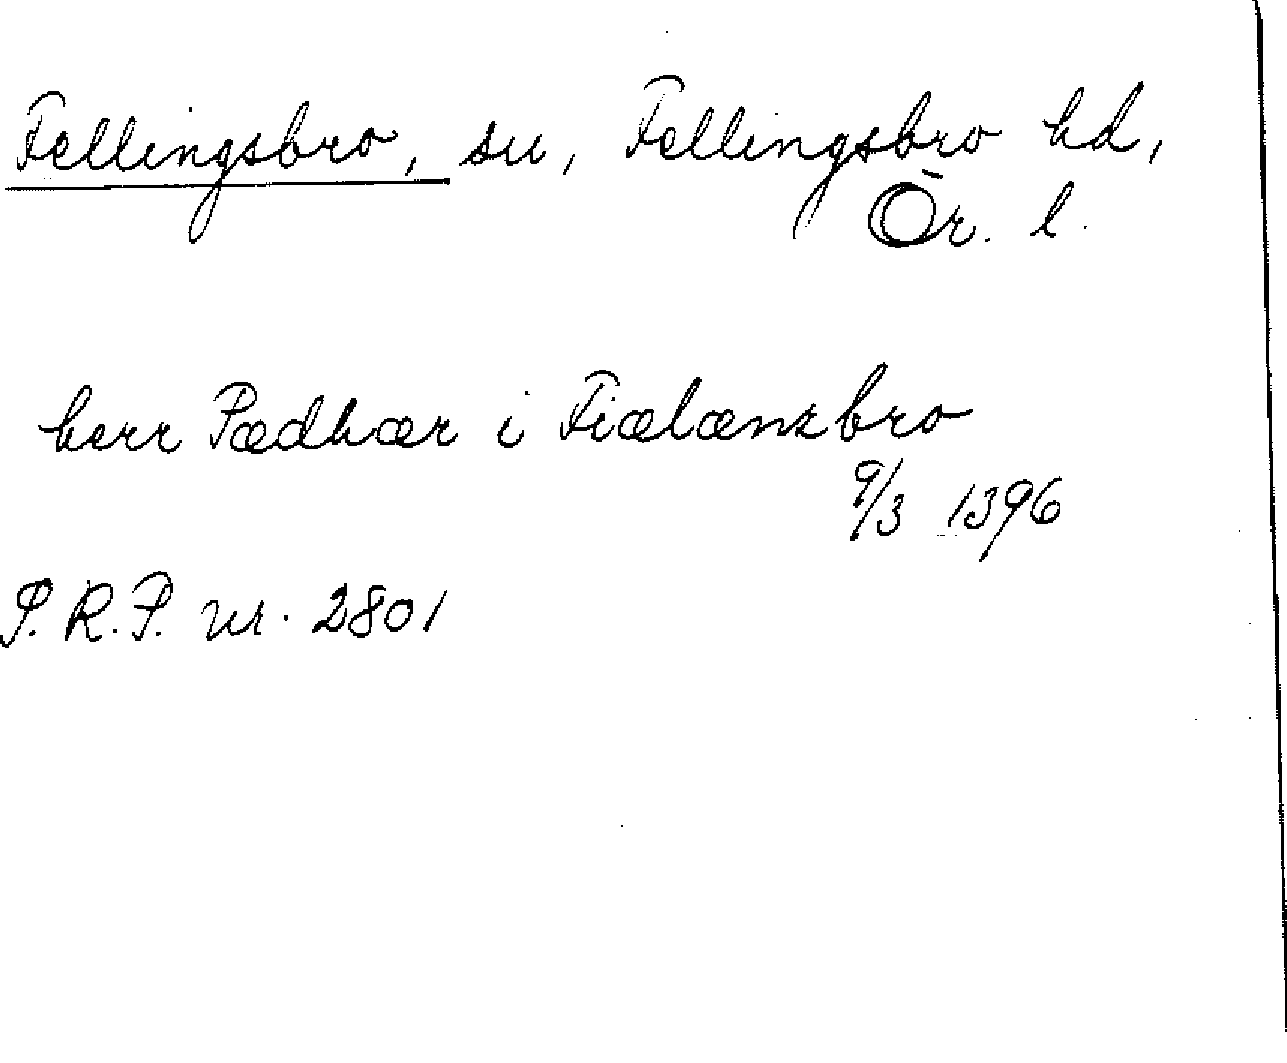 Fellingsbro, sn, Fellingsbro hd,
Ör. l.
herr Pædhær i Fiælænxbro
9/3 1396
P.R.P. nr. 2801